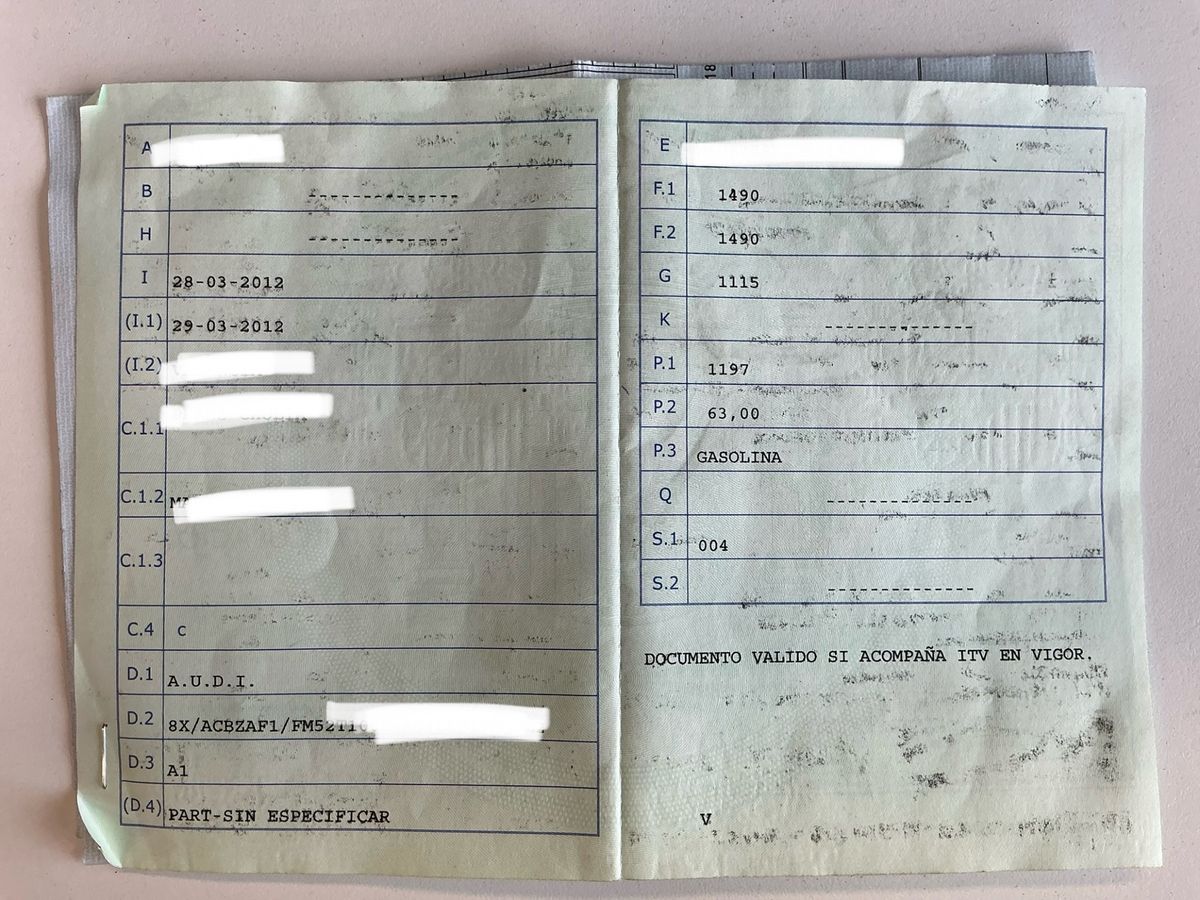 A
B -------------
H -------------
I 28-03-2012
(I.1) 29-03-2012
(I.2)
C.1.1
C.1.2
C.1.3
C.4 C
D.1 A.U.D.I.
D.2 8X/ACBZAF1/
D.3 A1
(D.4) PART-SIN ESPECIFICAR
E
F.1 1490
F.2 1490
G 1115
K -------------
P.1 1197
P.2 63,00
P.3 GASOLINA
Q -------------
S.1 004
S.2 -------------
DOCUMENTO VALIDO SI ACOMPAÑA ITV EN VIGOR.
V
18